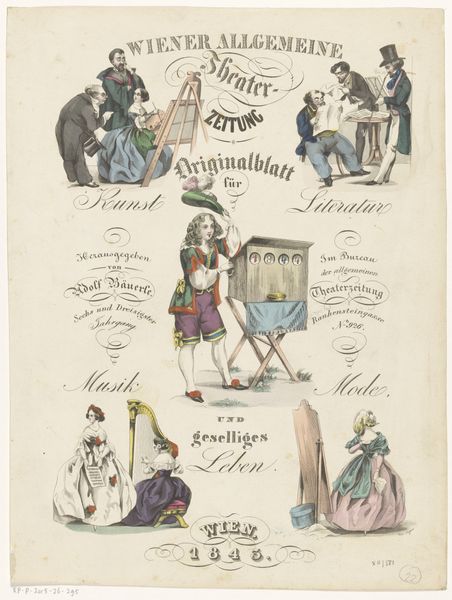 WIENER ALLGEMEINE
Theater-
ZEITUNG
Originalblatt
für
Kunst
Literatur
Herausgegeben
von
Adolf Bäuerle.
Sechs und Dreissigster
Jahrgang
Im Bureau
der allgemeinen
Theaterzeitung
Rauhensteingasse
No. 926.
Musik
Mode,
UND
geselliges
Leben.
WIEN.
1843.
RP-P-2015-26-295
XII/131
22